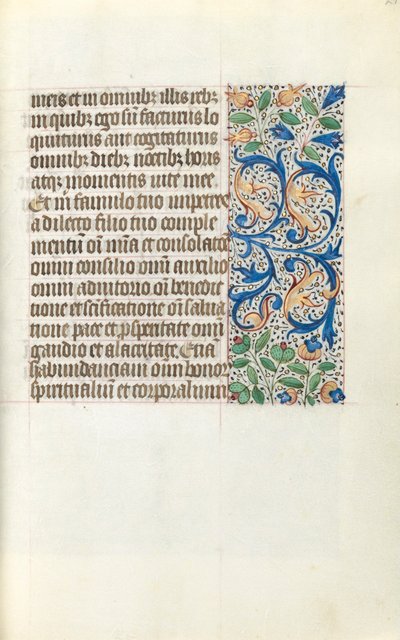 meis et in omnibz illis rebz
in quibz ego sū facturus lo
quuturus aut cogitaturus
omnibz diebz noctibz horis
atqz momentis uite mee
Et m famulo tuo impetres
a dilecto filio tuo comple
mentū oī mīa et consolatōe
omni consilio omī auxilio
omni adiutorio oī benedic
tione et scīficatione oī salua
tione pace et psperitate omi
gaudio et alacritate. Etiā
habundanciam omn bonor
spiritualiū et corporalium